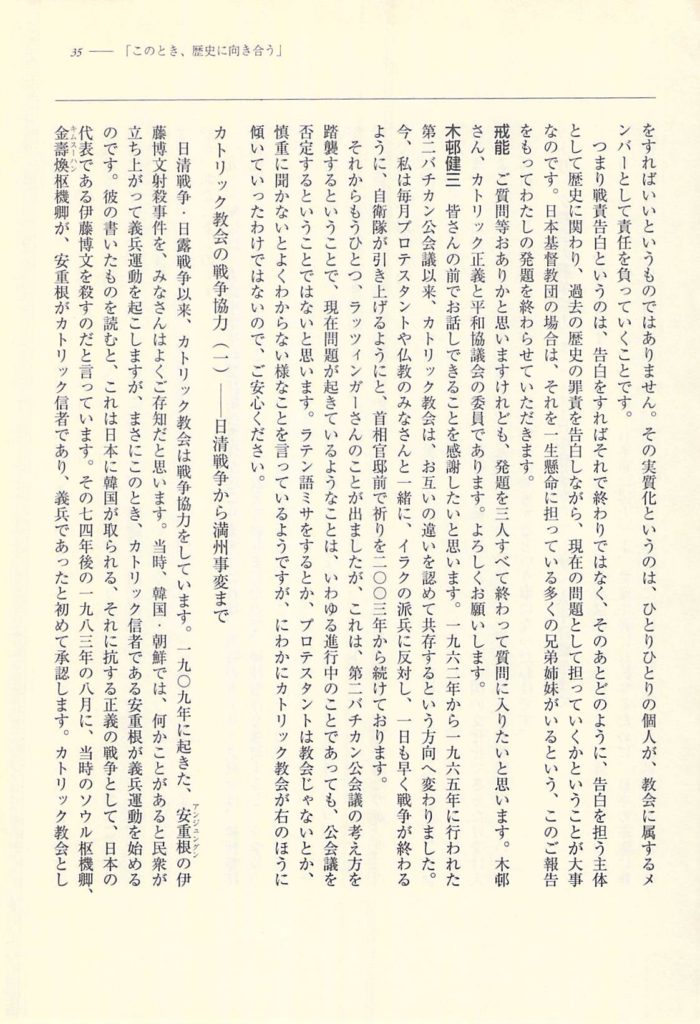 35 ――「このとき、歴史に向き合う」
をすればいいというものではありません。その実質化というのは、ひとりひとりの個人が、教会に属するメ
ンバーとして責任を負っていくことです。
つまり戦責告白というのは、告白をすればそれで終わりではなく、そのあとどのように、告白を担う主体
として歴史に関わり、過去の歴史の罪責を告白しながら、現在の問題として担っていくかということが大事
なのです。日本基督教団の場合は、それを一生懸命に担っている多くの兄弟姉妹がいるという、このご報告
をもってわたしの発題を終わらせていただきます。
戒能　ご質問等おありかと思いますけれども、発題を三人すべて終わって質問に入りたいと思います。木邨
さん、カトリック正義と平和協議会の委員であります。よろしくお願いします。
木邨健三　皆さんの前でお話しできることを感謝したいと思います。一九六二年から一九六五年に行われた
第二バチカン公会議以来、カトリック教会は、お互いの違いを認めて共存するという方向へ変わりました。
今、私は毎月プロテスタントや仏教のみなさんと一緒に、イラクの派兵に反対し、一日も早く戦争が終わる
ように、自衛隊が引き上げるようにと、首相官邸前で祈りを二〇〇三年から続けております。
それからもうひとつ、ラッツィンガーさんのことが出ましたが、これは、第二バチカン公会議の考え方を
踏襲するということで、現在問題が起きているようなことは、いわゆる進行中のことであっても、公会議を
否定するということではないと思います。ラテン語ミサをするとか、プロテスタントは教会じゃないとか、
慎重に聞かないとよくわからない様なことを言っているようですが、にわかにカトリック教会が右のほうに
傾いていったわけではないので、ご安心ください。
カトリック教会の戦争協力（一）――日清戦争から満州事変まで
日清戦争・日露戦争以来、カトリック教会は戦争協力をしています。一九〇九年に起きた、安重根の伊
アンジュングン
藤博文射殺事件を、みなさんはよくご存知だと思います。当時、韓国・朝鮮では、何かことがあると民衆が
立ち上がって義兵運動を起こしますが、まさにこのとき、カトリック信者である安重根が義兵運動を始める
のです。彼の書いたものを読むと、これは日本に韓国が取られる、それに抗する正義の戦争として、日本の
代表である伊藤博文を殺すのだと言っています。その七四年後の一九八三年の八月に、当時のソウル枢機卿、
キムスーハン
金壽煥枢機卿が、安重根がカトリック信者であり、義兵であったと初めて承認します。カトリック教会とし